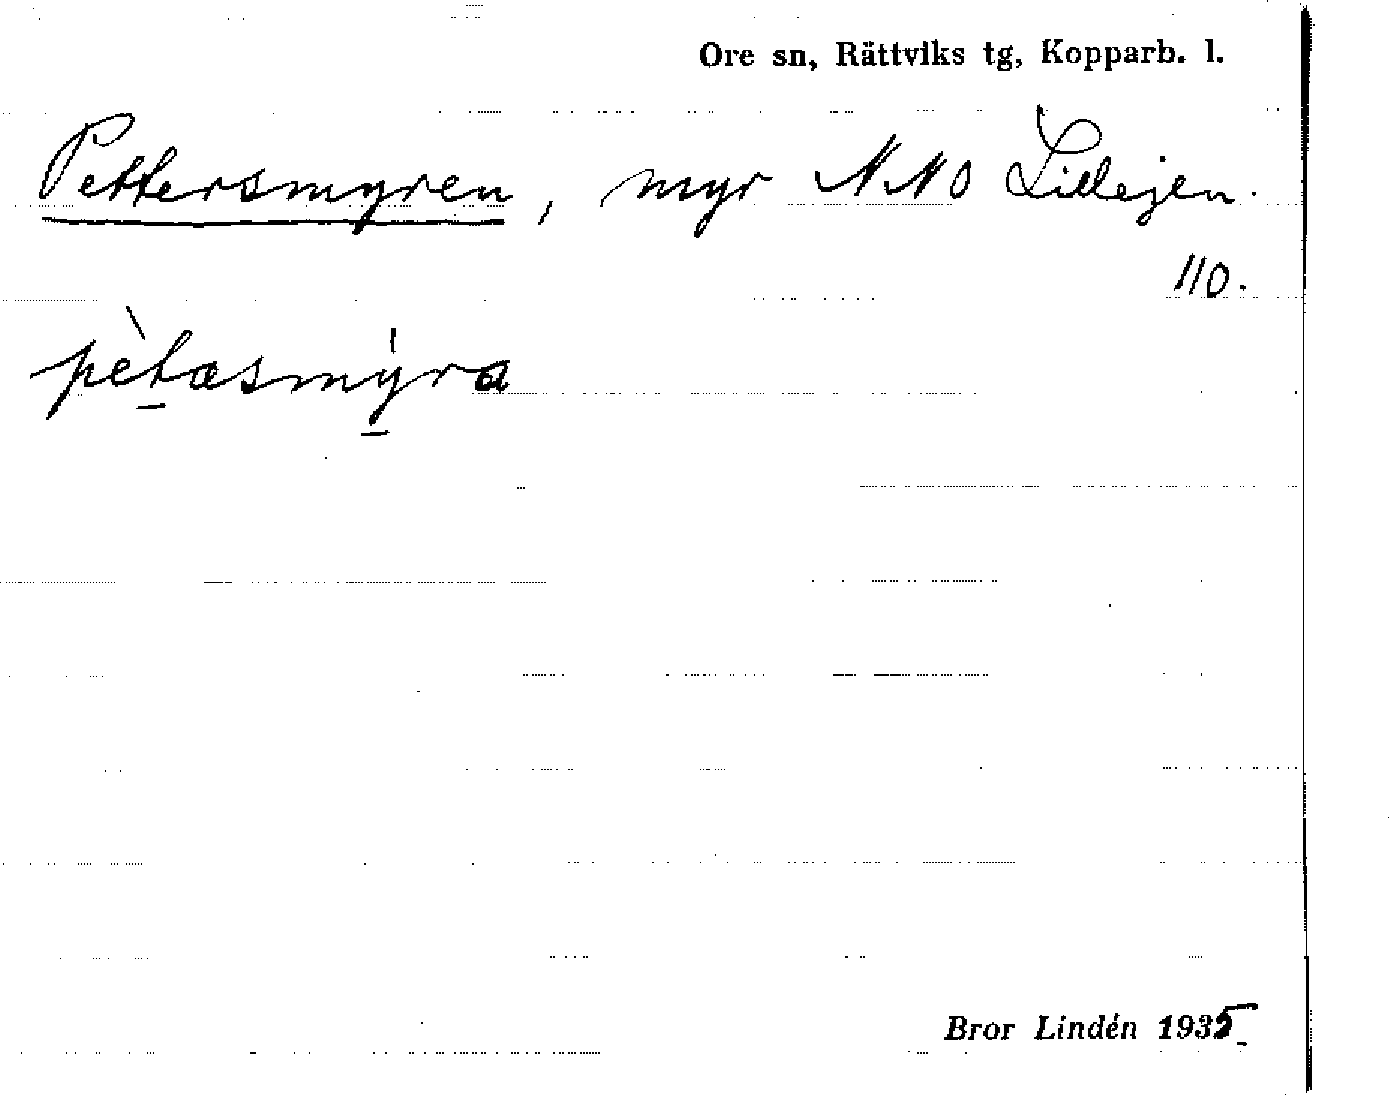 Ore sn, Rättviks tg, Kopparb. l.
Pettersmyren, myr NNO Lillejen.
110.
pètasmýra
Bror Lindén 1935